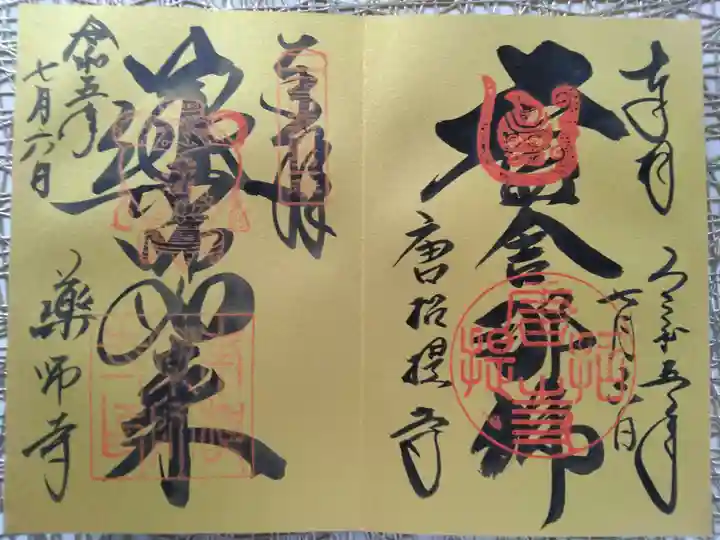 奉拝
令和五年
七月六日
盧舎那仏
唐招提寺
奉拝
薬師如来
令和五年
七月六日
薬師寺